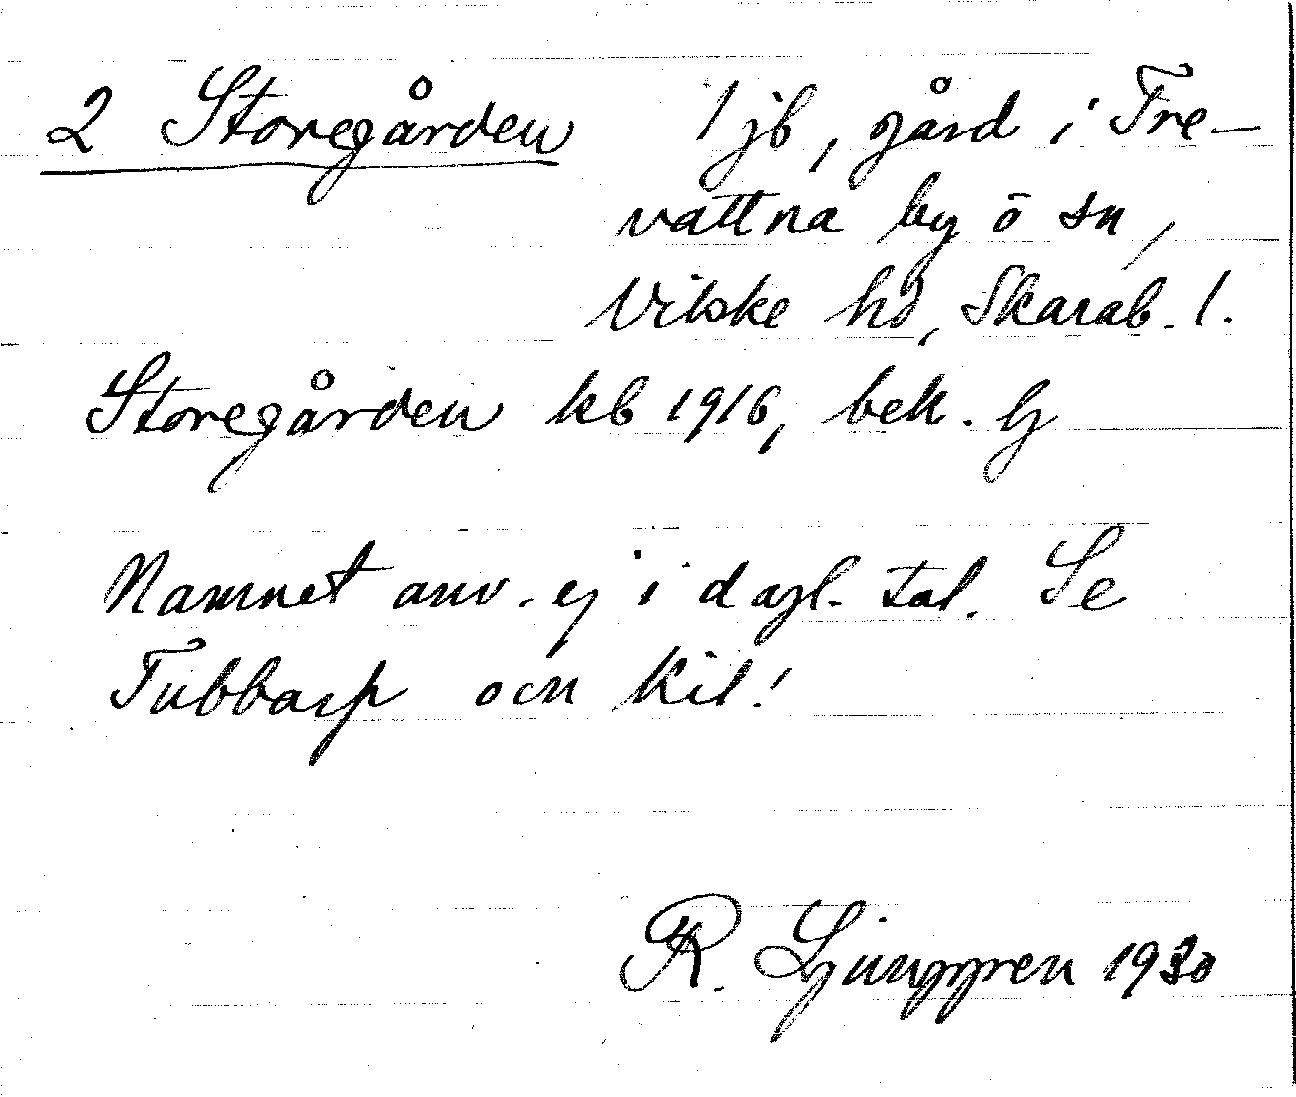 2 Storegården 1 jb, gård i Tre-
vattna by o sn,
Vilske hd, Skarab. l.
Storegården kb 1916, bek. lj
Namnet anv. ej i dagl. tal. Se
Tubbarp och Kil!
R. Ljunggren 1930